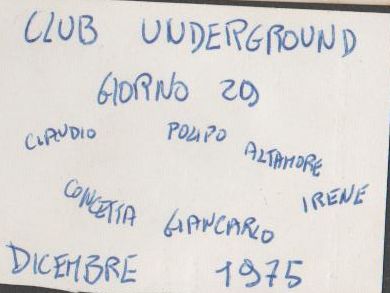 CLUB UNDERGROUND
GIORNO 29
CLAUDIO POLIPO ALTAMORE
CONCETTA GIANCARLO IRENE
DICEMBRE 1975